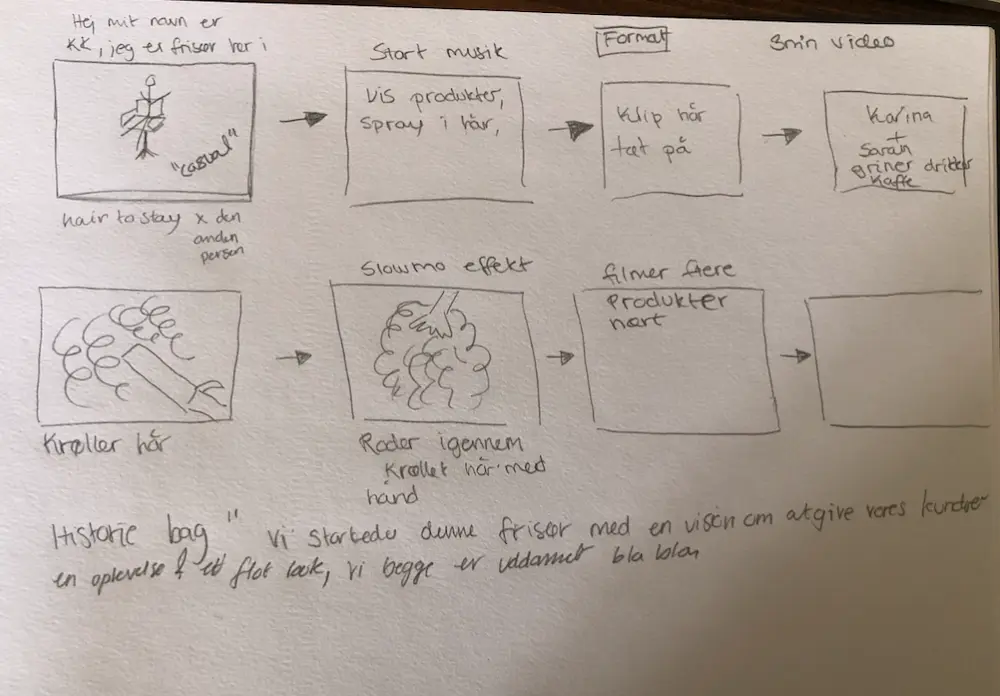 Hej mit navn er
KK, jeg er frisør her i
"casual"
hair to stay x den
anden
person
Start musik
Vis produkter,
spray i hår,
Format
Klip hår
tæt på
3min video
Karina
+
Sarah
griner drikker
Kaffe
Krøller hår
Slowmo effekt
Roder igennem
Krøllet hår med
hånd
filmer flere
Produkter
nært
Historie bag " Vi startede denne frisør med en visión om at give vores kunder
en oplevelse & et flot look, vi begge er uddannet bla blaa